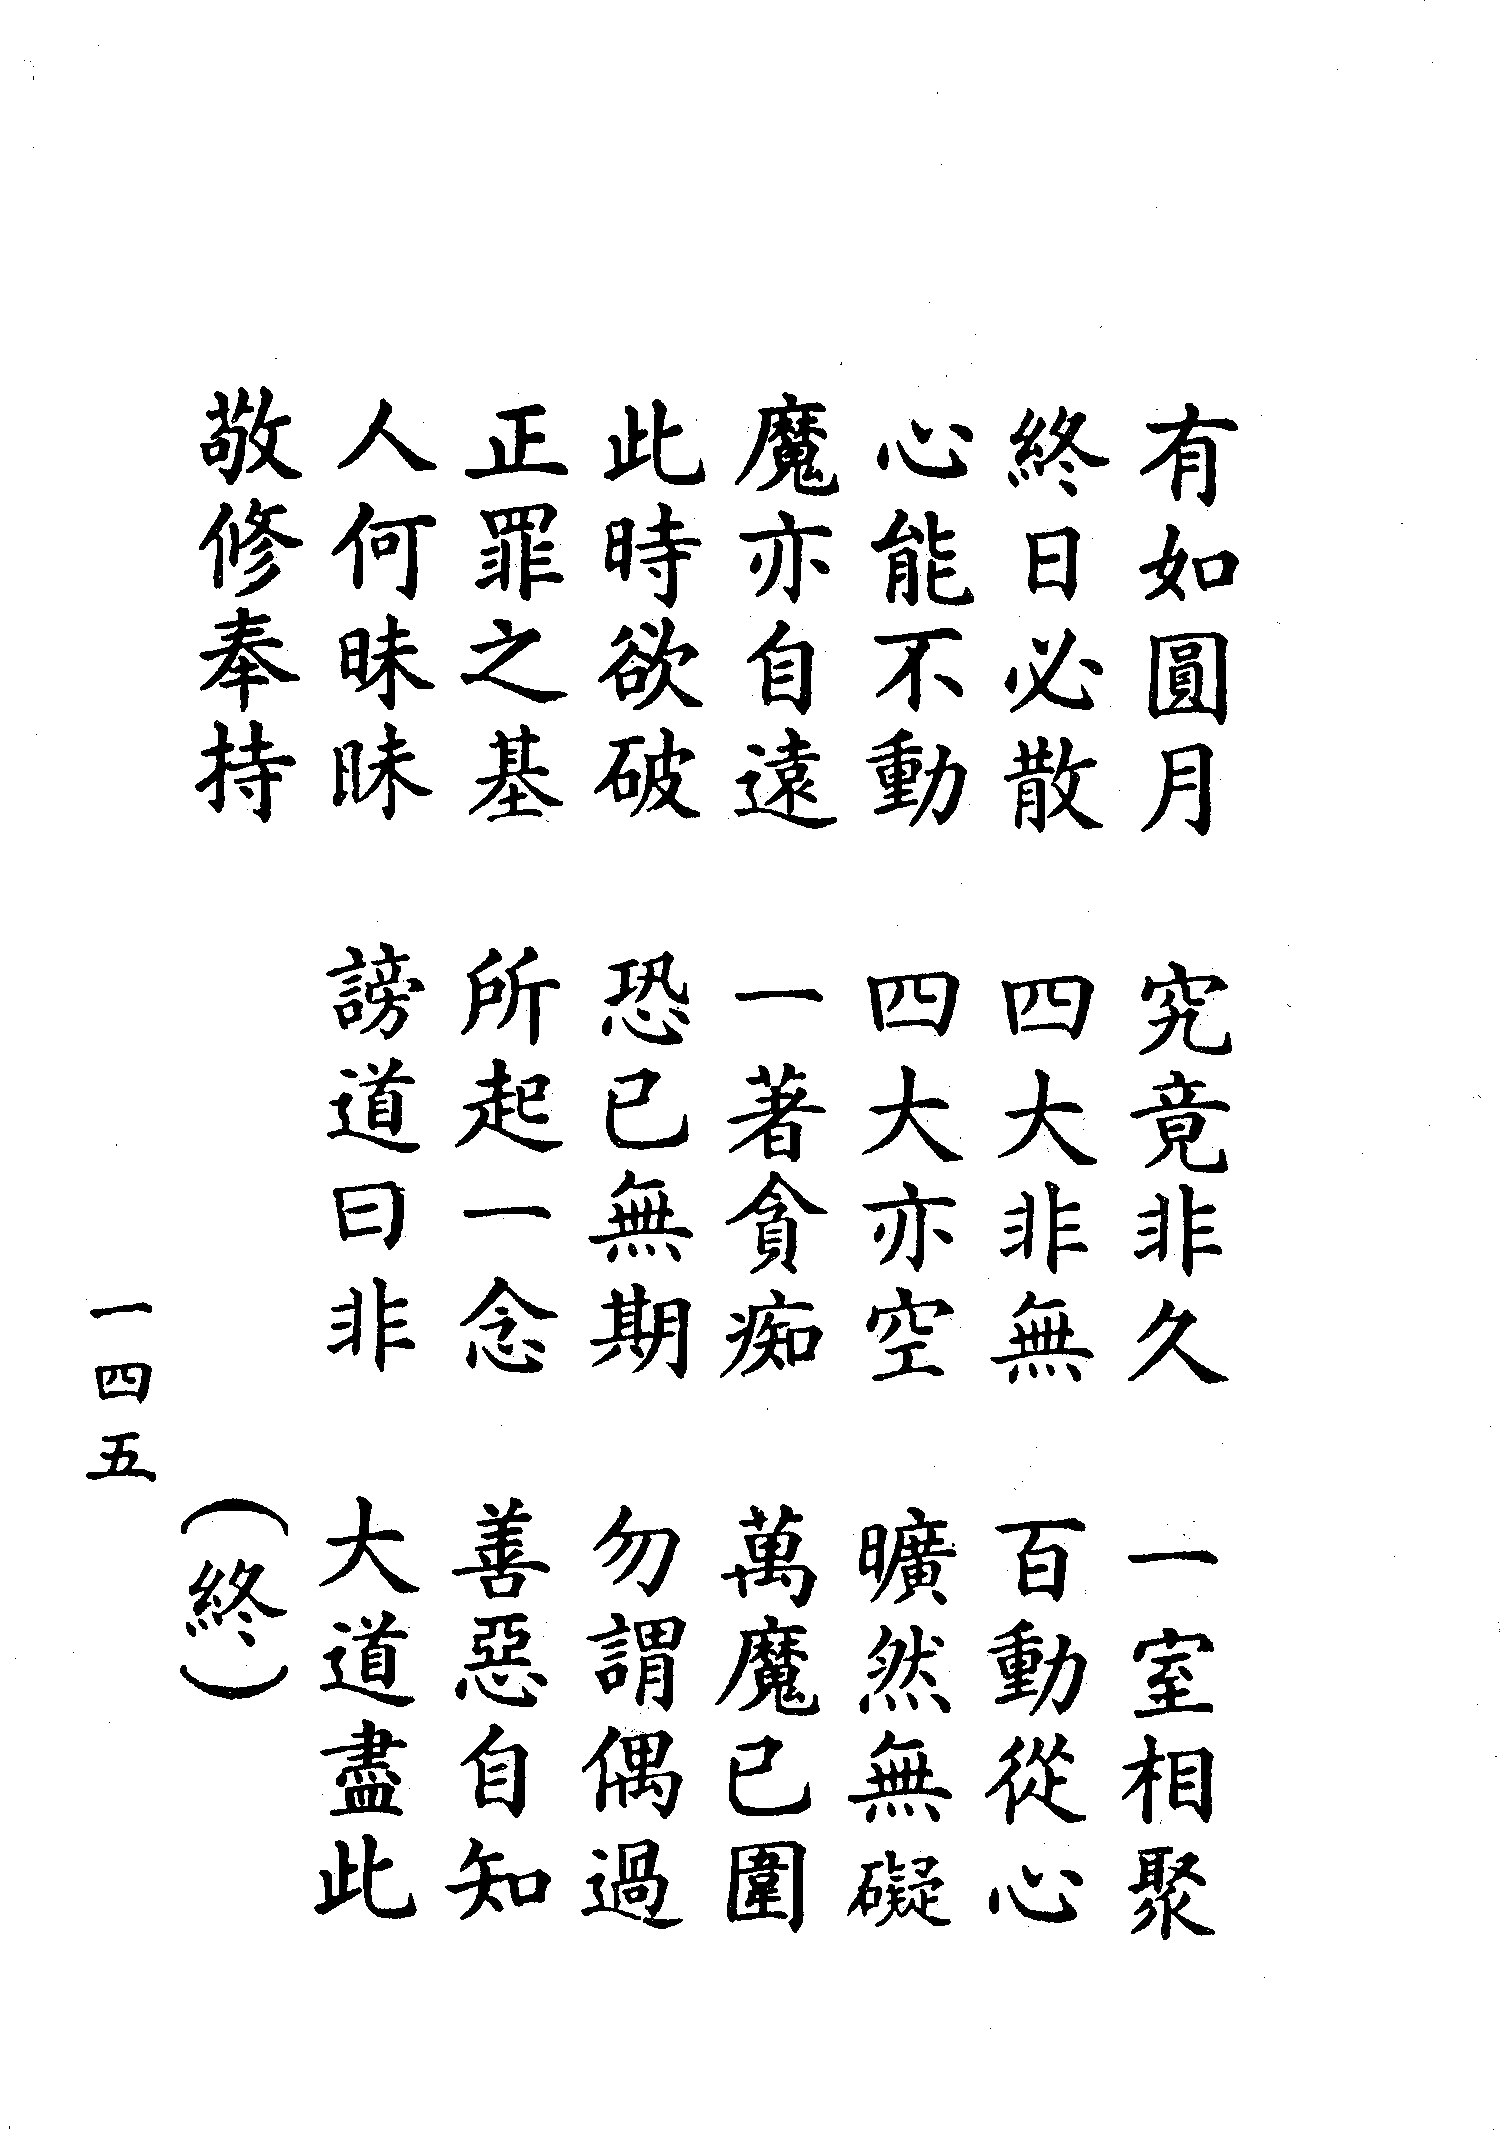 有如圓月　究竟非久　一室相聚
終日必散　四大非無　百動從心
心能不動　四大亦空　曠然無礙
魔亦自遠　一著貪痴　萬魔已圍
此時欲破　恐已無期　勿謂偶過
正罪之基　所起一念　善惡自知
人何昧昧　謗道曰非　大道盡此
敬修奉持　（終）
一四五